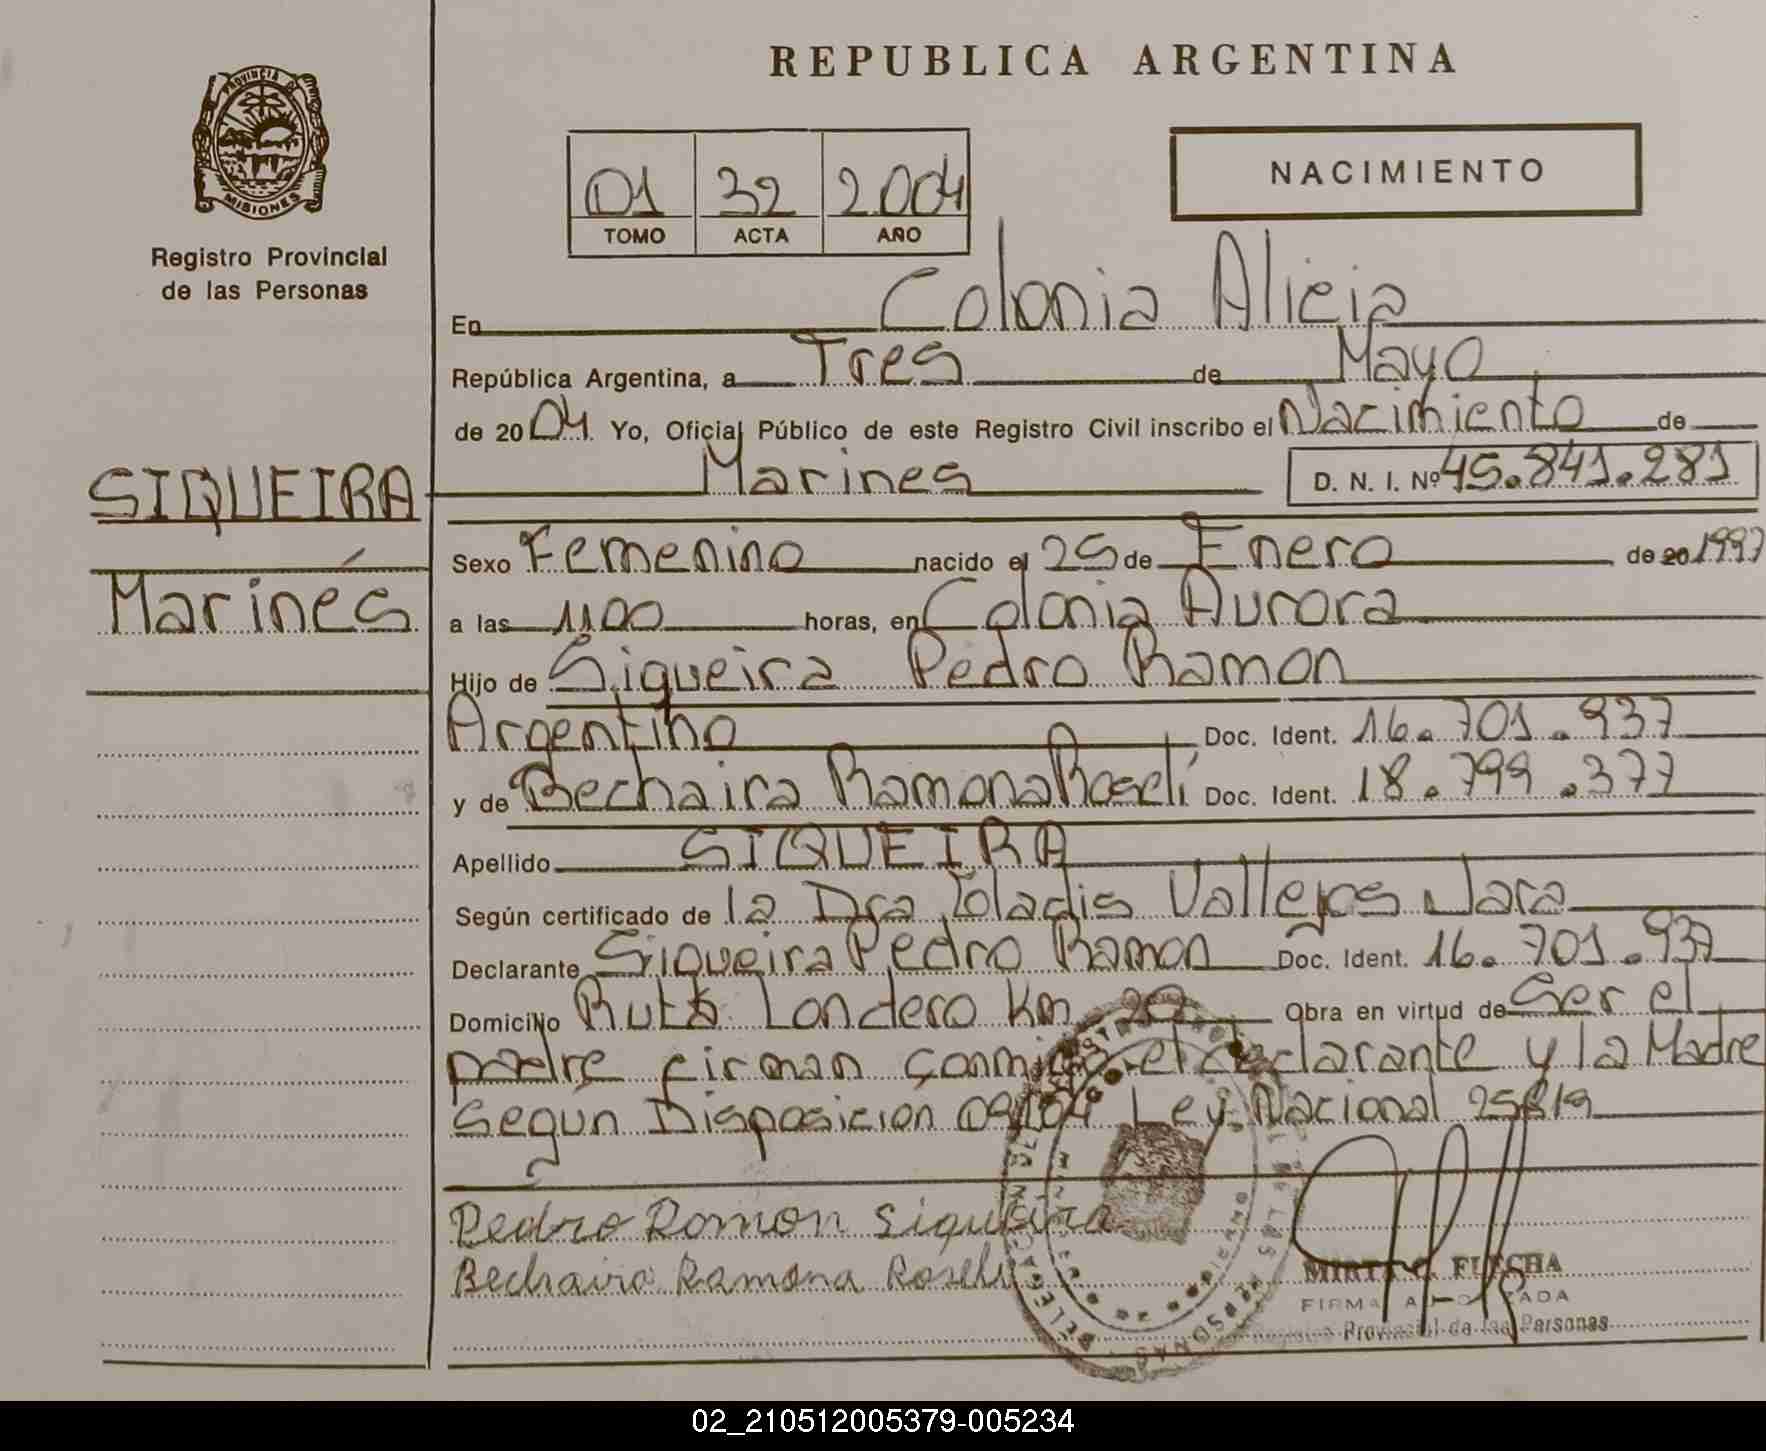 REPUBLICA ARGENTINA
PROVINCIA DE
MISIONES
Registro Provincial
de las Personas
01 32 2004
TOMO ACTA AÑO
NACIMIENTO
En Colonia Alicia
República Argentina, a Tres de Mayo
de 2004. Yo, Oficial Público de este Registro Civil inscribo el Nacimiento de
Marines D. N. I. Nº 45.841.281
SIQUEIRA
Marinés
Sexo Femenino nacido el 25 de Enero de 20 1997
a las 1100 horas, en Colonia Aurora
Hijo de Siqueira Pedro Ramon
Argentino Doc. Ident. 16.701.937
y de Bechaira Ramona Roselí Doc. Ident. 18.799.377
Apellido SIQUEIRA
Según certificado de la Dra Gladis Vallejos Jara
Declarante Siqueira Pedro Ramon Doc. Ident. 16.701.937
Domicilio Ruta Londero Km 20 Obra en virtud de Ser el
padre firman conmigo el declarante y la Madre
Segun Disposicion 09/04 Ley Nacional 25819
Pedro Romon Siqueira
Bechaira Ramona Roseli
FLECHA
FIRMA
Registro Provincial de las Personas
02_210512005379-005234